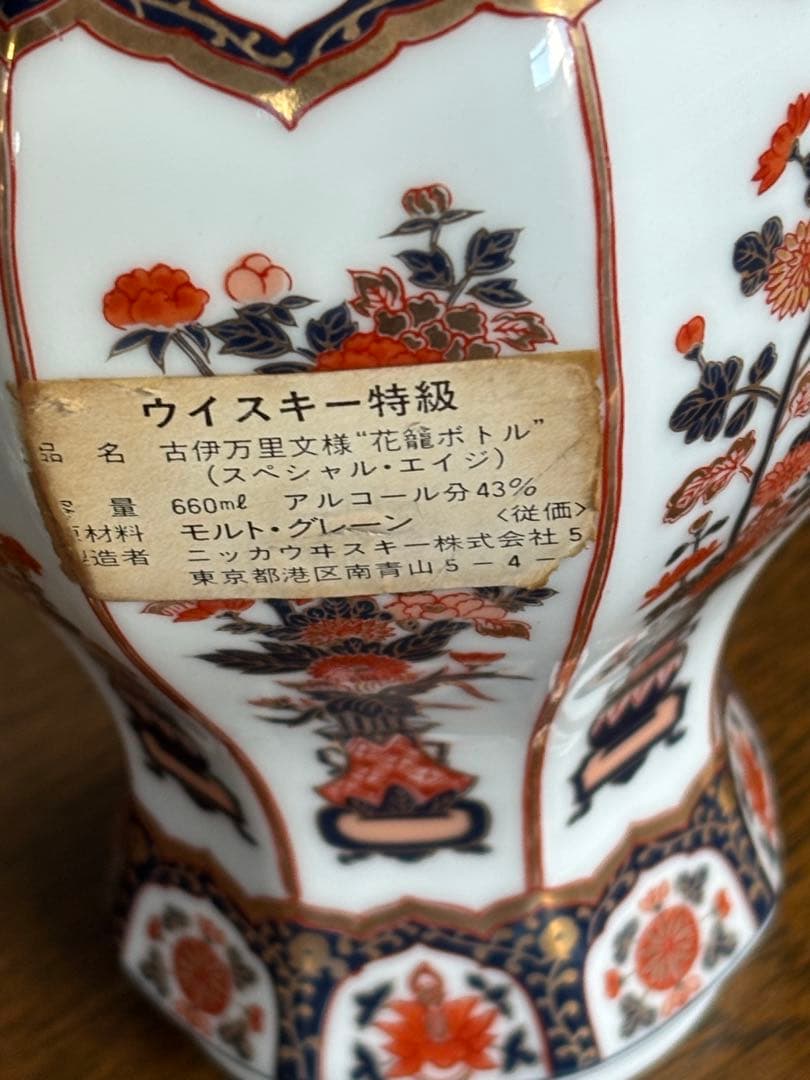 ウイスキー特級
品 名 古伊万里文様“花籠ボトル”
(スペシャル・エイジ)
容 量 660㎖ アルコール分43%
原材料 モルト・グレーン <従価>
製造者 ニッカウヰスキー株式会社 5
東京都港区南青山5-4-